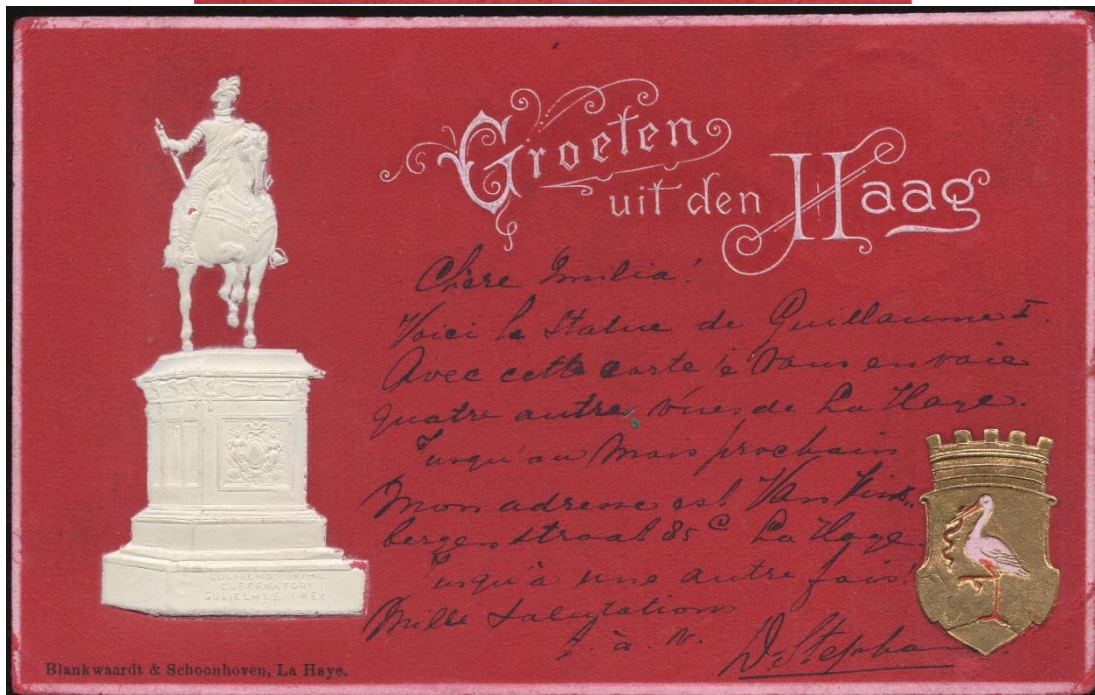 Groeten
uit den Haag
Chère Emilia!
Voici la statue de Guillaume I.
Avec cette carte je vous envoie
quatre autre vues de La Haye.
Jusqu'au mois prochain
Mon adresse est Van Kins-
bergenstraat 85 c La Haye
Jusqu'à une autre fois!
Mille salutations
t. à. v. D. Stepha
GULIELMO PRIMO
GUBERNATORI
GULIELMUS II REX
Blankwaardt & Schoonhoven, La Haye.